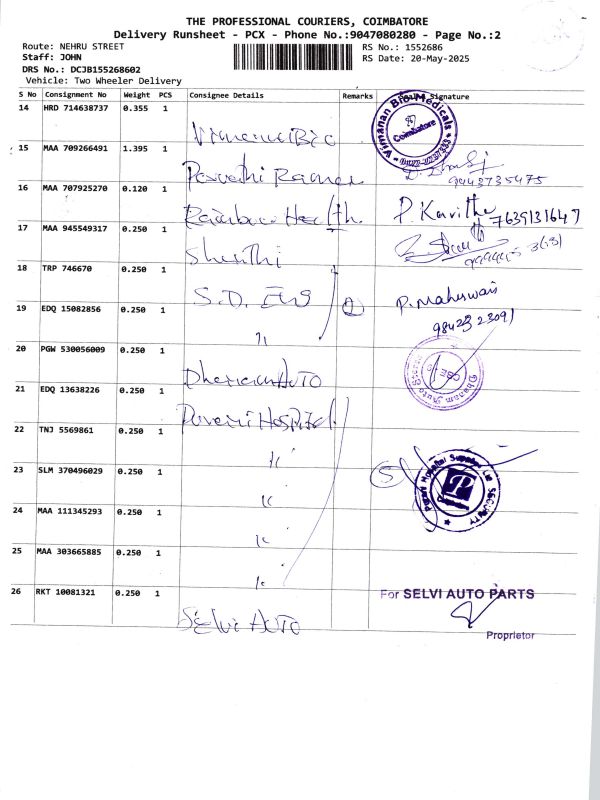 THE PROFESSIONAL COURIERS, COIMBATORE
Delivery Runsheet - PCX - Phone No.:9047080280 - Page No.:2
Route: NEHRU STREET
RS No.: 1552686
Staff: JOHN
RS Date: 20-May-2025
DRS No.: DCJB155268602
Vehicle: Two Wheeler Delivery
S No Consignment No Weight PCS Consignee Details Remarks Signature
14 HRD 714638737 0.355 1
Vimanan Bio-Medicals
Coimbatore
15 MAA 709266491 1.395 1
9443735475
16 MAA 707925270 0.120 1
Rainbow Health P. Kavitha 7639131647
17 MAA 945549317 0.250 1
Shruthi
18 TRP 746670 0.250 1
S.D. Eng 2 P. Maheswari
19 EDQ 15082856 0.250 1
98423 23091
20 PGW 530056009 0.250 1
Auto
Dhanam Auto
CBE
21 EDQ 13638226 0.250 1
Hospital
22 TNJ 5569861 0.250 1
5
SECURITY
P
23 SLM 370496029 0.250 1
24 MAA 111345293 0.250 1
25 MAA 303665885 0.250 1
26 RKT 10081321 0.250 1
Selvi Auto
For SELVI AUTO PARTS
Proprietor